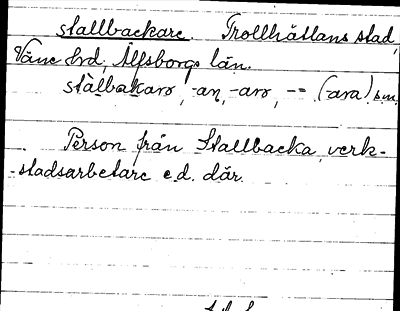 stallbackare. Trollhättans stad,
Väne hd, Älfsborgs län.
stàlbakarə, -an, -arə, -- (-ara) sm.
Person från Stallbacka, verk-
-stadsarbetare e.d. där.